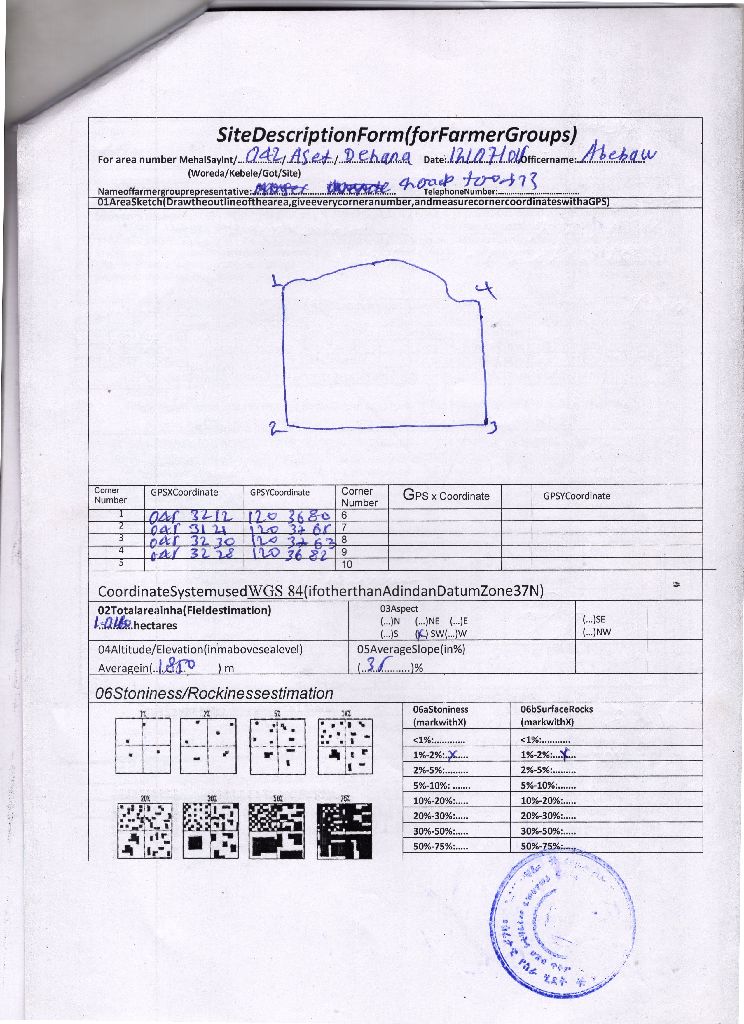 SiteDescriptionForm(forFarmerGroups)
For area number MehalSayInt/..042/Aset/Dehana Date:12/07/016 Officername: Abebaw
(Woreda/Kebele/Got/Site)
Nameoffarmergrouprepresentative: TelephoneNumber:
01AreaSketch(Drawtheoutlineofthearea,giveeverycorneranumber,andmeasurecornercoordinateswithaGPS)
1 4
2 3
Corner Number GPSXCoordinate GPSYCoordinate Corner Number GPS x Coordinate GPSYCoordinate
1 3212 120 3680 6
2 120 7
3 3230 120 8
4 3228 120 3682 9
5 10
CoordinateSystemusedWGS 84(ifotherthanAdindanDatumZone37N)
02Totalareainha(Fieldestimation) 03Aspect
hectares (...)N (...)NE (...)E (...)SE
(...)S (X) SW(...)W (...)NW
04Altitude/Elevation(inmabovesealevel) 05AverageSlope(in%)
Averagein(..1850 ) m (..35......)%
06Stoniness/Rockinessestimation
1% 2% 5% 10%
20% 30% 50% 75%
06aStoniness (markwithX) 06bSurfaceRocks (markwithX)
<1%:........... <1%:...........
1%-2%:..X.... 1%-2%:...X...
2%-5%:........ 2%-5%:........
5%-10%: ....... 5%-10%:.......
10%-20%:..... 10%-20%:.....
20%-30%:..... 20%-30%:.....
30%-50%:..... 30%-50%:.....
50%-75%:..... 50%-75%:.....